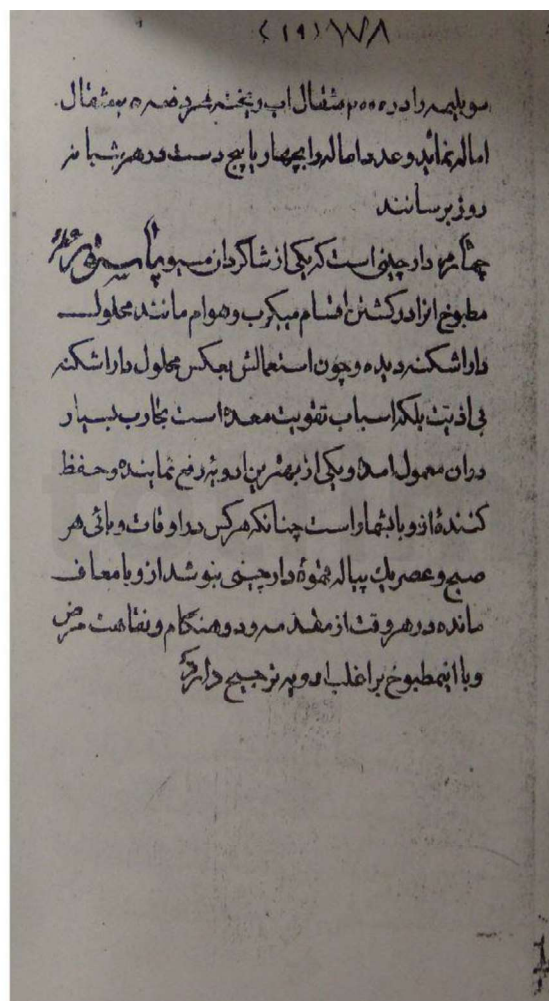 (۱۹) ۷۸
سوبلیمه را در ۲۰۰۰ مثقال اب ریخته هر دفعه ۵۰ مثقال
اماله نمائید و عدد اماله را بچهار یا پنج دست در هر شبانه
روز برسانند
چهارم دارچینی است که یکی از شاگردان مسیو پاستور
مطبوخ انرا در کشتن اقسام میکرب و هوام مانند محلول
داراشکنه دیده و چون استعمالش بعکس محلول داراشکنه
بی اذیت بلکه اسباب تقویت معده است تجارب بسیار
دران معمول امده و یکی از بهترین ادویه رفع نماینده و حفظ
کنندهٔ از وبا بشمار است چنانکه هر کس در اوقات وبائی هر
صبح و عصر یک پیاله قهوهٔ دارچینی بنوشد از وبا معاف
مانده و در هر وقت از مقدمه و در هنگام و نقاهت مرض
وبا این مطبوخ بر اغلب ادویه ترجیح دارد